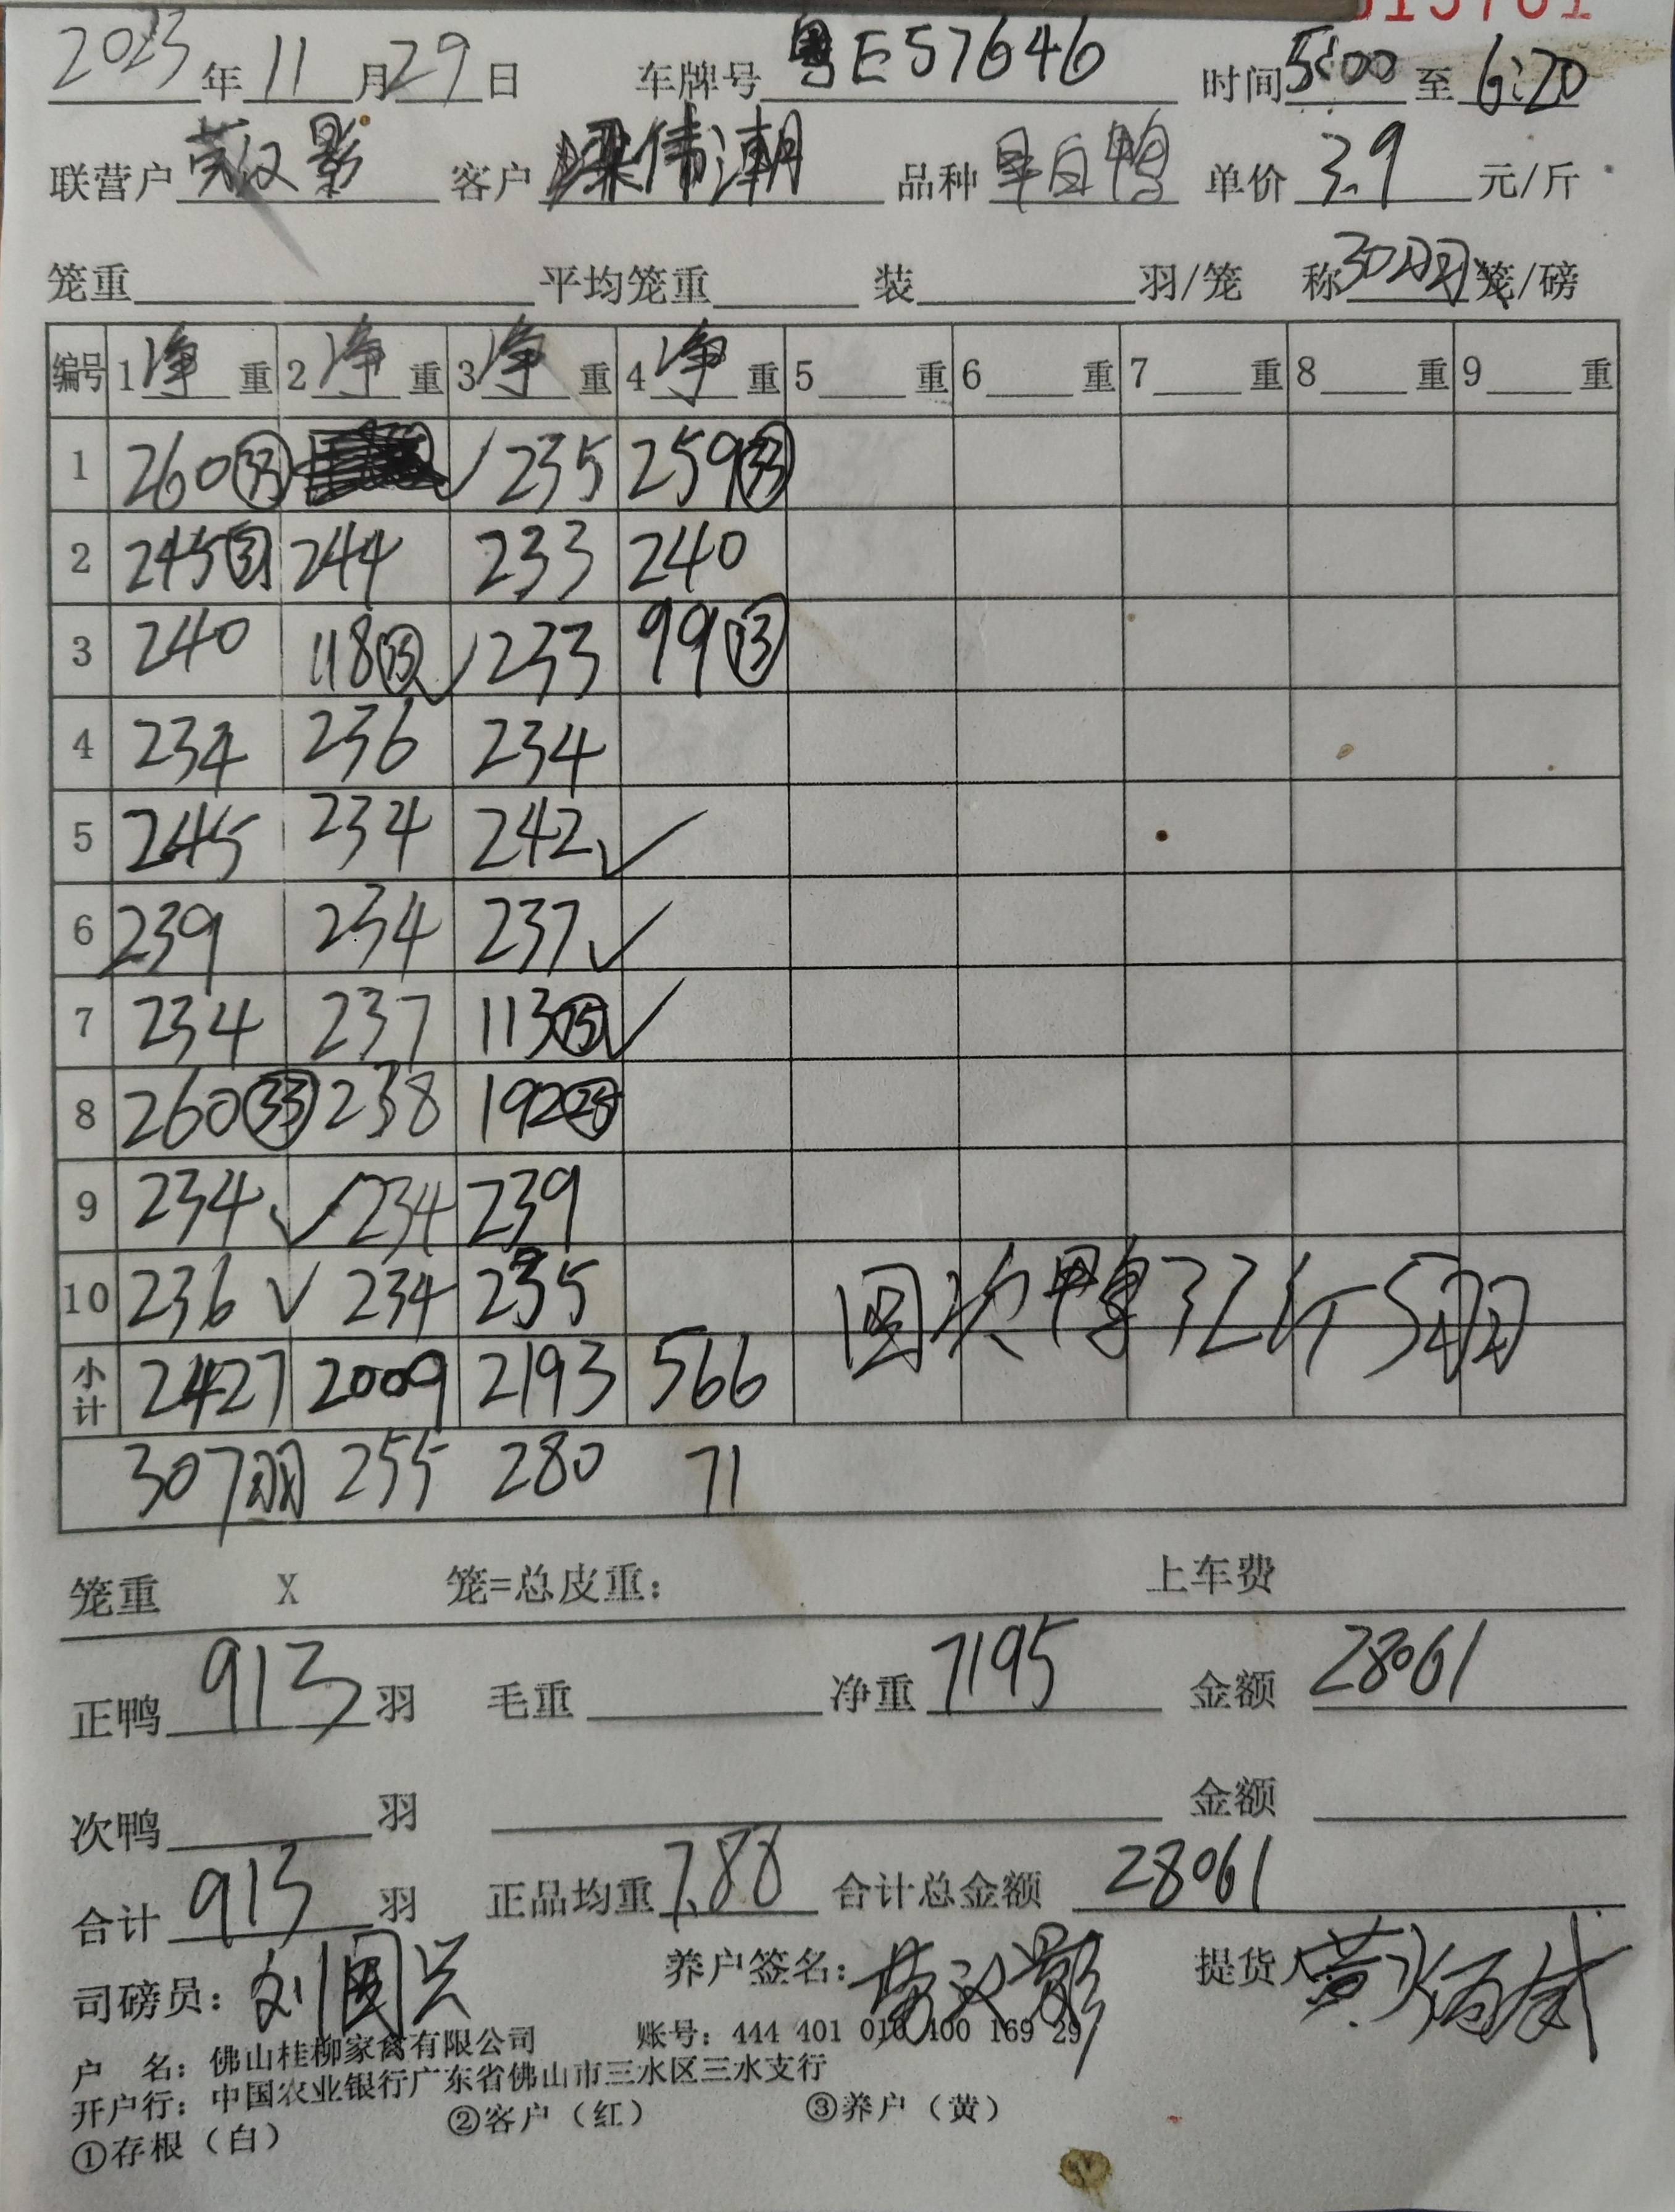 2023年11月29日 车牌号 粤E57646 时间 5:00 至 6:20
联营户 黄汉影 客户 梁伟潮 品种 旱白鸭 单价 3.9 元/斤
笼重 平均笼重 装 羽/笼 称 30羽 笼/磅
编号 1净重 2净重 3净重 4净重 5重 6重 7重 8重 9重
1 260㉝ ✓235 259㉝
2 245㉛ 244 233 240
3 240 118⑮ ✓233 99⑬
4 234 236 234
5 245 234 242✓
6 239 234 237✓
7 234 237 113⑮✓
8 260㉝ 238 192
9 234✓ ✓234 239
10 236✓ 234 235
小计 2427 2009 2193 566
回次鸭32斤5羽
307羽 255 280 71
笼重 X 笼=总皮重: 上车费
正鸭 913 羽 毛重 净重 7195 金额 28061
次鸭 羽 金额
合计 913 羽 正品均重 7.88 合计总金额 28061
司磅员: 刘国兴 养户签名: 黄汉影 提货人
户 名: 佛山桂柳家禽有限公司 账号: 444 401 010 400 169 29
开户行: 中国农业银行广东省佛山市三水区三水支行
①存根(白) ②客户(红) ③养户(黄)